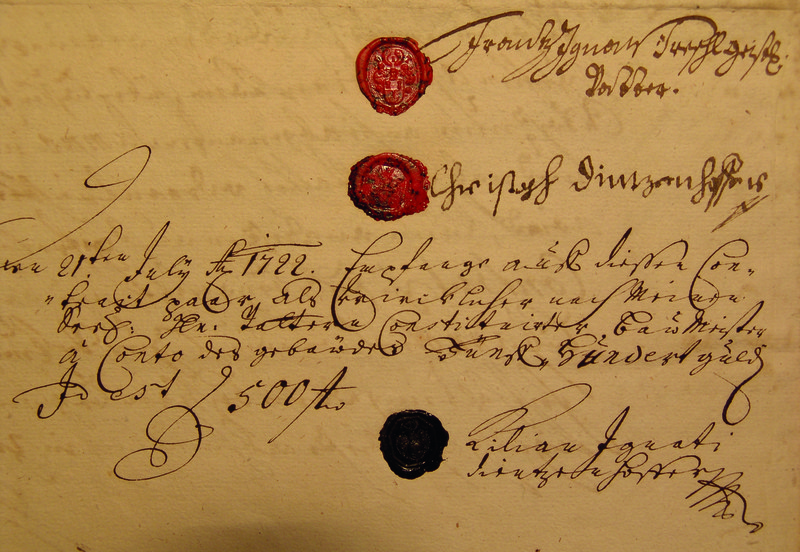 Frantz Ignati
Christoph Dintzenhoffer
den 21ten July Ao 1722. Empfange auß diesen Con-
tract paar, als würcklicher nach Meinen
Seel: Hn. Vattern Constituirter Bau Meister
à Conto des gebäudes Fünff Hundert guld
Id est 500 f
Kilian Ignati
Dientzenhoffer